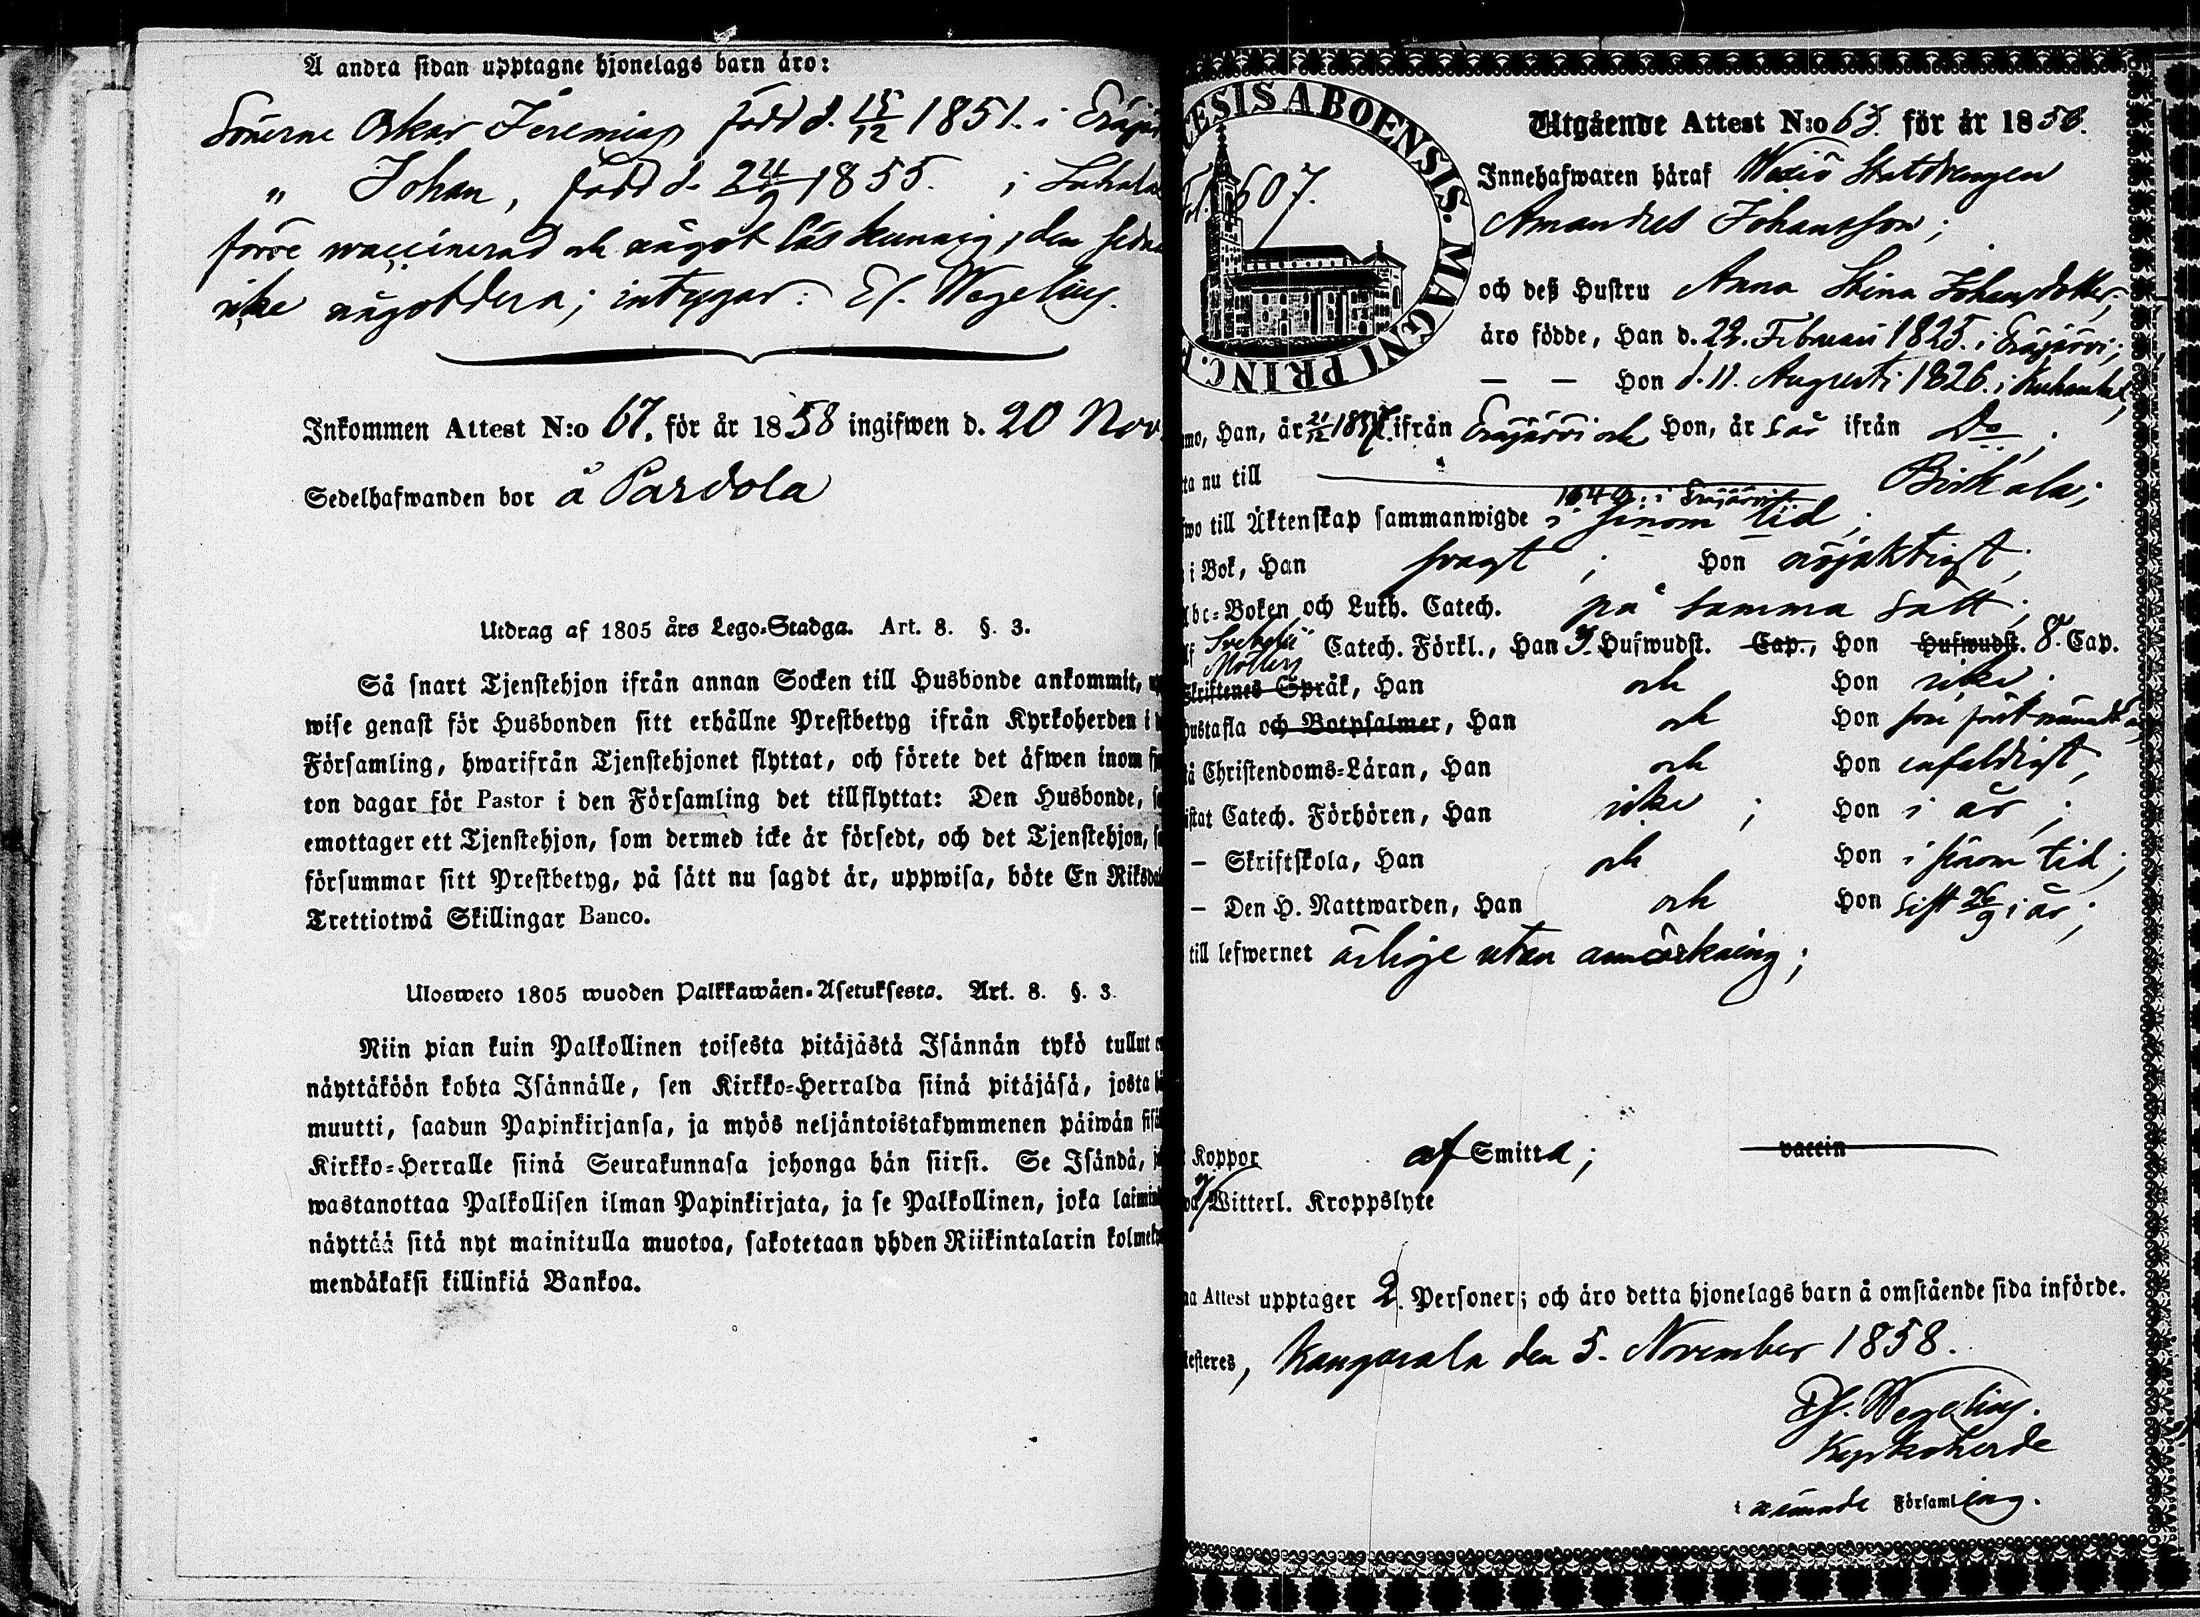 Å andra sidan upptagne hjonelags barn äro:
Sönerne Oskar Jeremias född d. 15/12 1851. i Eräjär
" Johan, född d. 24/9 1855. i Sahala
förre waccinerad och något läs kunnig, den sedna
icke någotdera; intygar: Ef. Wegelius.
Inkommen Attest N:o 67. för år 1858 ingifwen d. 20 Nov.
Sedelhafwanden bor å Pardola
Utdrag af 1805 års Lego-Stadga. Art. 8. §. 3.
Så snart Tjenstehjon ifrån annan Socken till Husbonde ankommit, u
wise genast för Husbonden sitt erhållne Prestbetyg ifrån Kyrkoherden i
Församling, hwarifrån Tjenstehjonet flyttat, och förete det äfwen inom fj
ton dagar för Pastor i den Församling det tillflyttat: Den Husbonde, s
emottager ett Tjenstehjon, som dermed icke är försedt, och det Tjenstehjon, s
försummar sitt Prestbetyg, på sätt nu sagdt är, uppwisa, böte En Riksda
Trettiotwå Skillingar Banco.
Ulosweto 1805 wuoden Palkkawäen-Asetuksesta. Art. 8. §. 3.
Niin pian kuin Palkollinen toisesta pitäjästä Isännän tykö tullut o
näyttäköön kohta Isännälle, sen Kirkko-Herralda siinä pitäjäsä, josta hä
muutti, saadun Papinkirjansa, ja myös neljäntoistakymmenen päiwän sisä
Kirkko-Herralle siinä Seurakunnasa johonga hän siirsi. Se Isändä, j
wastanottaa Palkollisen ilman Papinkirjata, ja se Palkollinen, joka laimin
näyttää sitä nyt mainitulla muotoa, sakotetaan yhden Riikintalarin kolmeky
mendäkaksi killinkiä Bankoa.
CESIS ABOENSIS. MAGNI PRINC. F
Fol. 607.
Utgående Attest N:o 63. för år 1858.
Innehafwaren häraf Wexiö Statdrengen
Amandus Johansson;
och deß Hustru Anna Stina Johansdotter;
äro födde, Han d. 22. Februari 1825. i Eräjärvi;
— — Hon d. 11. Augusti 1826. i Kuhmalax;
mo, Han, är 21/12 1857. ifrån Eräjärvi och Hon, är s. år ifrån Do;
ta nu till Birkala;
1849. i Eräjärvi
two till Äktenskap sammanwigde i sinom tid;
i Bok, Han svagt; Hon nöjaktigt;
Abc-Boken och Luth. Catech. på samma sätt;
lf Svebelii Catech. Förkl., Han 3. Hufwudst. Cap., Hon Hufwudst. 8. Cap.
Möllers
Skriftenes Språk, Han och Hon icke.
Hustafla och Botpsalmer, Han och Hon som först nämndt
å Christendoms-Läran, Han och Hon enfaldigt,
istat Catech. Förhören, Han icke; Hon i år;
— Skriftskola, Han och Hon i sinom tid;
— Den H. Nattwarden, Han och Hon sist 26/9 i år;
till lefwernet ärlige utan anmärkning;
Koppor af Smitta; vaccin
ej Witterl. Kroppslyte
na Attest upptager 2. Personer; och äro detta hjonelags barn å omstående sida införde.
testeres, Kangasala den 5. November 1858.
Ef. Wegelius.
Kyrkoherde
i nämnde Församling.